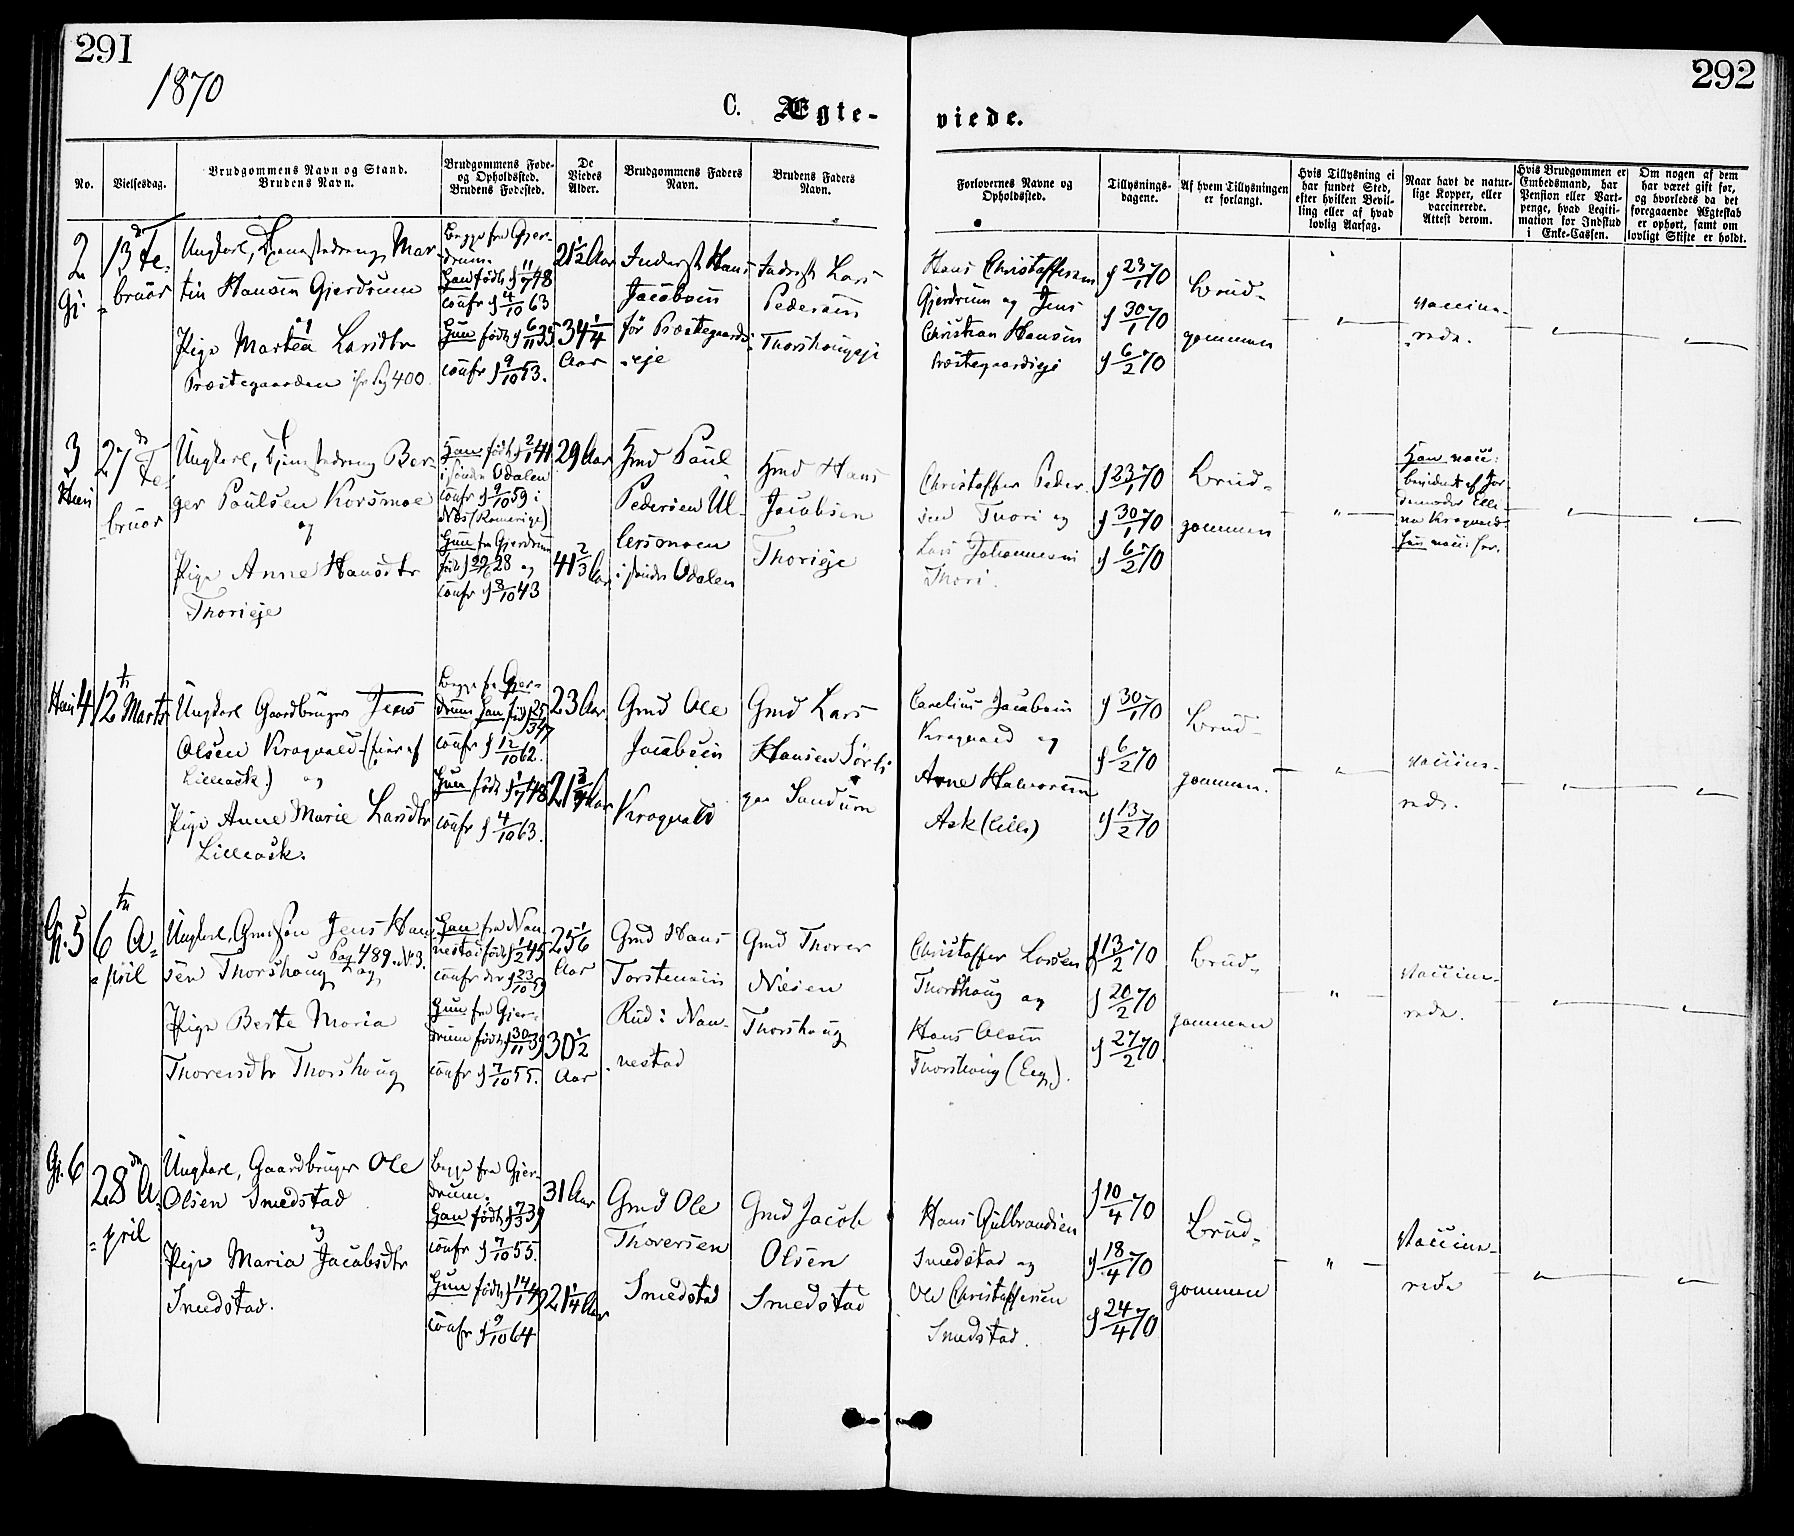 291
292
1870
C. Ægte-
viede.
No.
Vielsesdag.
Brudgommens Navn og Stand.
Brudens Navn.
Brudgommens Føde-
og Opholdssted.
Brudens Fødested.
De
Viedes
Alder.
Brudgommens Faders
Navn.
Brudens Faders
Navn.
Forlovernes Navne og
Opholdssted.
Tillysnings-
dagene.
Af hvem Tillysningen
er forlangt.
Hvis Tillysning ei
har fundet Sted,
efter hvilken Bevil-
ling eller af hvad
lovlig Aarsag.
Naar havt de natur-
lige Kopper, eller
vaccinerede.
Attest derom.
Hvis Brudgommen er
Embedsmand, har
Pension eller Vart-
penge, hvad Legiti-
mation for Indskud
i Enke-Cassen.
Om nogen af dem
har været gift før,
og hvorledes da det
foregaaende Ægteskab
er ophørt, samt om
lovligt Skifte er holdt.
2
Gj.
13de Fe-
bruar
Ungkarl, Mar-
tin Hansen Gjerdrum
og
Pige Martea Larsdtr
Præstegaarden Pag 400
Begge fra Gjer-
drum.
Han født d 11/7 48
confr d 4/10 63
Hun født d 6/11 35
confr d 9/10 53.
21 1/2 Aar
34 1/4
Aar
Inderst Hans
Jacobsen
Præstegaards-
eje
Inderst Lars
Pedersen
Thorshougeje
Hans Christoffersen
Gjerdrum og Jens
Christian Hansen
Præstegaardseje
d 23/1 70
d 30/1 70
d 6/2 70
Brud-
gommen
"
Vaccine-
rede.
3
Heni
27de Fe-
bruar
Ungkarl, Ber-
ger Paulsen Korsmoe
og
Pige Anne Hansdtr
Thorieje
Han født d 2/1 41
i søndre Odalen
confr d 9/10 59 i
Næs (Romerige)
Hun fra Gjerdrum
28 og
confr d 8/10 43
29 Aar
41 2/3 Aar
Gmd Paul
Pedersen Ul-
lersmoen
i søndre Odalen
Gmd Hans
Jacobsen
Thorieje
Christoffer Peder-
sen Thori og
Lars Johannesen
Thori.
d 23/1 70
d 30/1 70
d 6/2 70
Brud-
gommen
"
Han vacc:
bevidnet af Jor-
demoder Elle-
na Kroqvald
Hun vacc:
Heni 4
12te Marts
Ungkarl Gaardbruger Jens
Olsen Kroqvald (Eier af
Lilleask) og
Pige Anne Marie Larsdtr
Lilleask.
Begge fra Gjer-
drum Han født d 25/3 47
confr d 12/10 62.
Hun født d 1/7 48
confr d 4/10 63.
23 Aar
21 3/4 Aar
Gmd Ole
Jacobsen
Kroqvald
Gmd Lars
Hansen Sørli
paa Sundum
Carelius Jacobsen
Kroqvald og
Arne Halvorsen
Ask (Lille)
d 30/1 70
d 6/2 70
d 13/2 70
Brud-
gommen.
"
Vaccine-
rede.
Gj. 5
6te A-
pril
Ungkarl, Gmdsøn Jens Han-
sen Thorshoug og
Pag 489 No 3.
Pige Berte Maria
Thorersdtr Thorshoug
Han fra Nan-
nestad født d 1/2 45
confr der d 23/10 59
Hun fra Gjer-
drum født d 30/11 39
confr d 7/10 55.
25 1/6
Aar
30 1/2
Aar
Gmd Hans
Torstensen
Rud i Nan-
nestad
Gmd Thorer
Nilsen
Thorshoug
Christoffer Larsen
Thorshoug og
Hans Olsen
Thorshoug (Eeg).
d 13/2 70
d 20/2 70
d 27/2 70.
Brud-
gommen
"
Vaccine-
rede.
Gj. 6
28de A-
pril
Ungkarl, Gaardbruger Ole
Olsen Smedstad
og
Pige Maria Jacobsdtr
Smedstad.
Begge fra Gjer-
drum.
Han født d 7/3 39
confr d 7/10 55.
Hun født d 14/1 49
confr d 9/10 64
31 Aar
21 1/4 Aar
Gmd Ole
Thoversen
Smedstad
Gmd Jacob
Olsen
Smedstad
Hans Gulbrandsen
Smedstad og
Ole Christoffersen
Smedstad.
d 10/4 70
d 18/4 70
d 24/4 70
Brud-
gommen
"
Vaccine-
rede